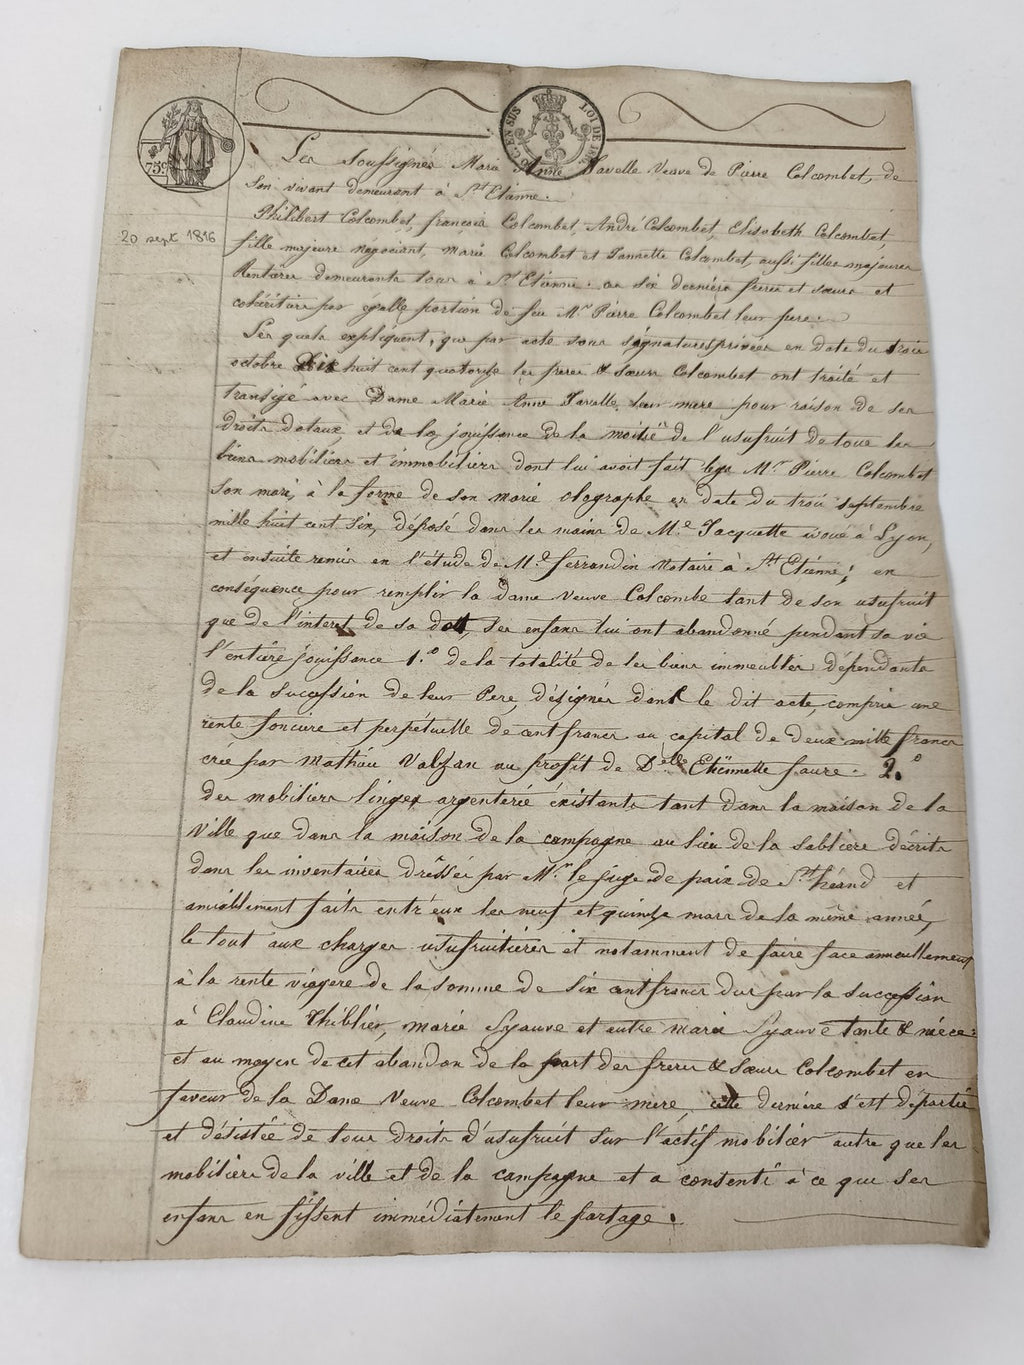 75c
C. EN SUS
LOI DE
20 sept 1816
Les Soussignés Marie Anne Javelle Veuve de Pierre Colcombet, de
Son vivant demeurant à St Etienne.
Philibert Colcombet, françois Colcombet, André Colcombet, Elisabeth Colcombet,
fille majeure négociant, marie Colcombet et Jannette Colcombet, aussi filles majeures
Rentières demeurants tous à St Etienne. ces six derniers freres et sœurs et
cohéritiers par égalle portion de feu Mr Pierre Colcombet leur pere.
Les quels expliquent, que par acte sous signatures privées en date du trois
octobre Dix huit cent quatorze les freres & sœurs Colcombet ont traité et
transigé avec Dame Marie Anne Javelle leur mere pour raison de ses
droits dotaux, et de la jouissance de la moitié de l'usufruit de tous les
biens mobiliers et immobiliers dont lui avoit fait legs Mr Pierre Colcombet
Son mari, à la forme de son olographe en date du trois septembre
mille huit cent Six, déposé dans les mains de Me Jacquette avoué à Lyon,
et ensuite remis en l'étude de Me ferrandin Notaire à St Etienne; en
conséquence pour remplir la Dame Veuve Colcombe tant de son usufruit
que de l'interet de sa dott, ses enfans lui ont abandonné pendant sa vie
l'entiere jouissance 1.o de la totalité de les biens immeubles dépendants
de la Succession de leur Pere, désignés dans le dit acte, compris une
rente fonciere et perpétuelle de cent francs au capital de deux mille francs
créé par Mathieu Valzan au profit de Delle Etiennette faure. 2.o
des mobiliers linges argenterie éxistants tant dans la maison de la
Ville que dans la maison de la campagne au lieu de la sabliere décrits
dans les inventaires drêssés par Mr le juge de paix de St héand et
amiablement faits entr'eux les neuf et quinze mars de la même année,
le tout aux charges usufruitieres et notamment de faire face annuellement
à la rente viagere de la Somme de Six cent francs dus par la Succession
à Claudine Thiblier, marie Syauve et autre marie Syauve tante & niéce:
et au moyen de cet abandon de la part des freres & Sœurs Colcombet en
faveur de la Dame Veuve Colcombet leur mere, cette derniere s'est départie
et désistée de tous droits d'usufruit sur l'actif mobilier autre que les
mobiliers de la ville et de la campagne et a consenti à ce que ses
enfans en fissent immédiatement le partage.